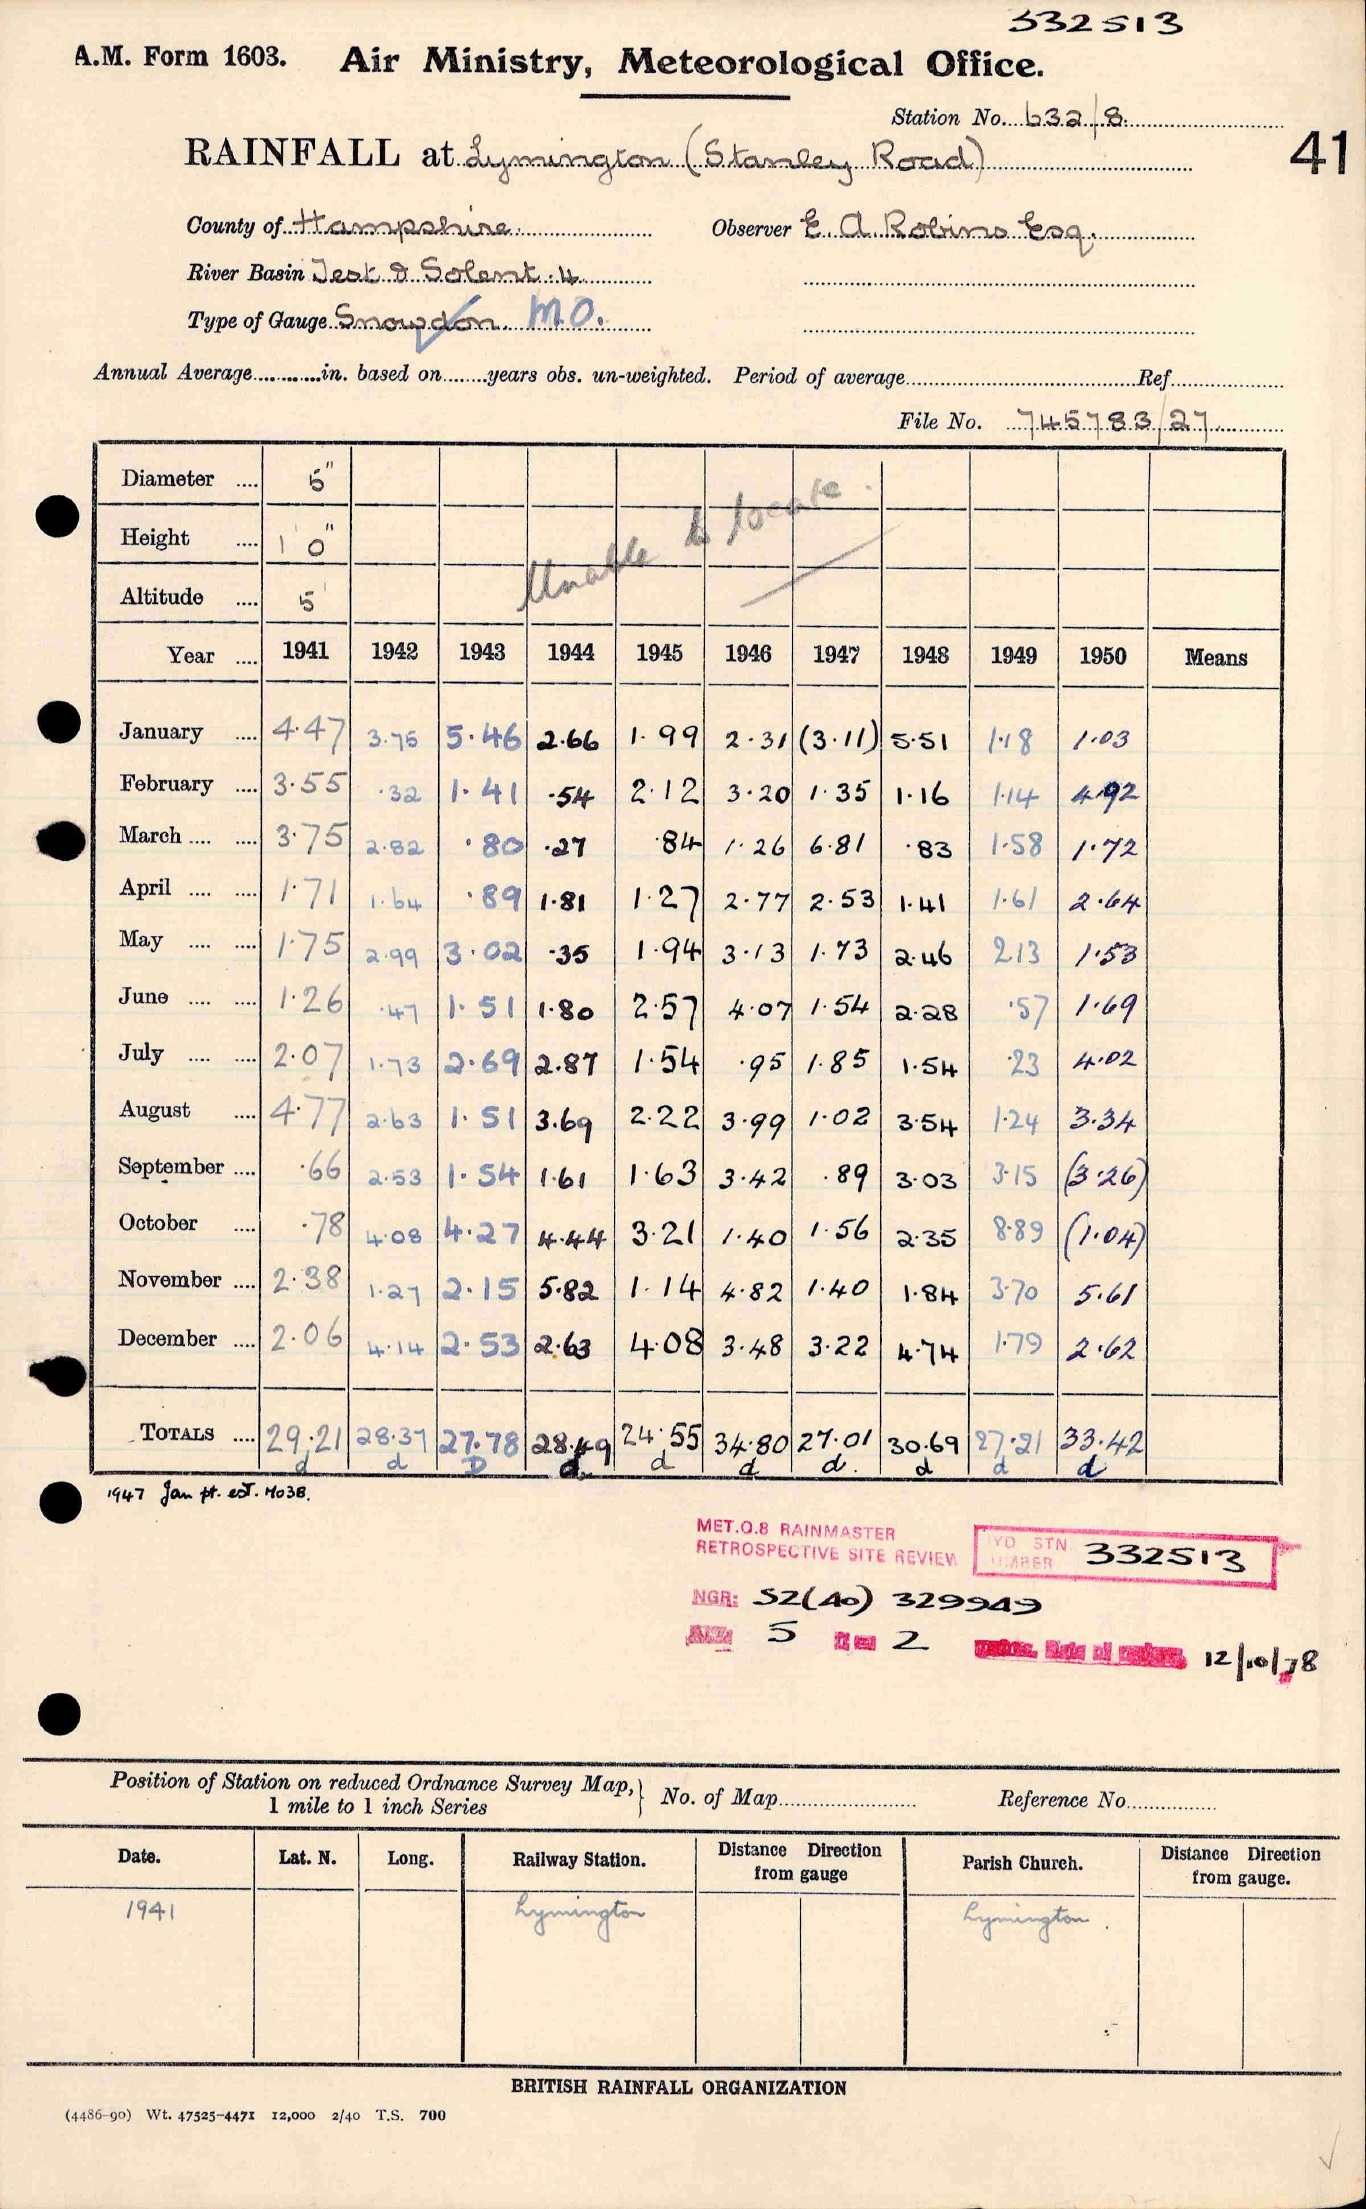 332513
A.M. Form 1603. Air Ministry, Meteorological Office.
Station No. 632/8.
41
RAINFALL at Lymington (Stanley Road)
County of Hampshire. Observer E. A. Robins Esq.
River Basin Test & Solent .4.
Type of Gauge Snowdon. M.O.
Annual Average............in. based on........years obs. un-weighted. Period of average........Ref........
File No. 745783/27
Diameter .... 5"
Height .... 1' 0"
Altitude .... 5'
Unable to locate.
Year .... 1941 1942 1943 1944 1945 1946 1947 1948 1949 1950 Means
January .... 4.47 3.75 5.46 2.66 1.99 2.31 (3.11) 5.51 1.18 1.03
February .... 3.55 .32 1.41 .54 2.12 3.20 1.35 1.16 1.14 4.92
March .... .... 3.75 2.82 .80 .27 .84 1.26 6.81 .83 1.58 1.72
April .... .... 1.71 1.64 .89 1.81 1.27 2.77 2.53 1.41 1.61 2.64
May .... .... 1.75 2.99 3.02 .35 1.94 3.13 1.73 2.46 2.13 1.53
June .... .... 1.26 .47 1.51 1.80 2.57 4.07 1.54 2.28 .57 1.69
July .... .... 2.07 1.73 2.69 2.87 1.54 .95 1.85 1.54 .23 4.02
August .... 4.77 2.63 1.51 3.69 2.22 3.99 1.02 3.54 1.24 3.34
September .... .66 2.53 1.54 1.61 1.63 3.42 .89 3.03 3.15 (3.26)
October .... .78 4.08 4.27 4.44 3.21 1.40 1.56 2.35 8.89 (1.04)
November .... 2.38 1.27 2.15 5.82 1.14 4.82 1.40 1.84 3.70 5.61
December .... 2.06 4.14 2.53 2.63 4.08 3.48 3.22 4.74 1.79 2.62
TOTALS .... 29.21 28.37 27.78 28.49 24.55 34.80 27.01 30.69 27.21 33.42
d d D d. d d d. d d d
1947 Jan pt. est. MO3B.
MET.O.8 RAINMASTER
RETROSPECTIVE SITE REVIEW
STN 332513
NGR: SZ(40) 329949
5 2 12/10/78
Position of Station on reduced Ordnance Survey Map,} No. of Map........ Reference No........
1 mile to 1 inch Series
Date. Lat. N. Long. Railway Station. Distance Direction from gauge Parish Church. Distance Direction from gauge.
1941 Lymington Lymington.
BRITISH RAINFALL ORGANIZATION
(4486-90) Wt. 47525-4471 12,000 2/40 T.S. 700